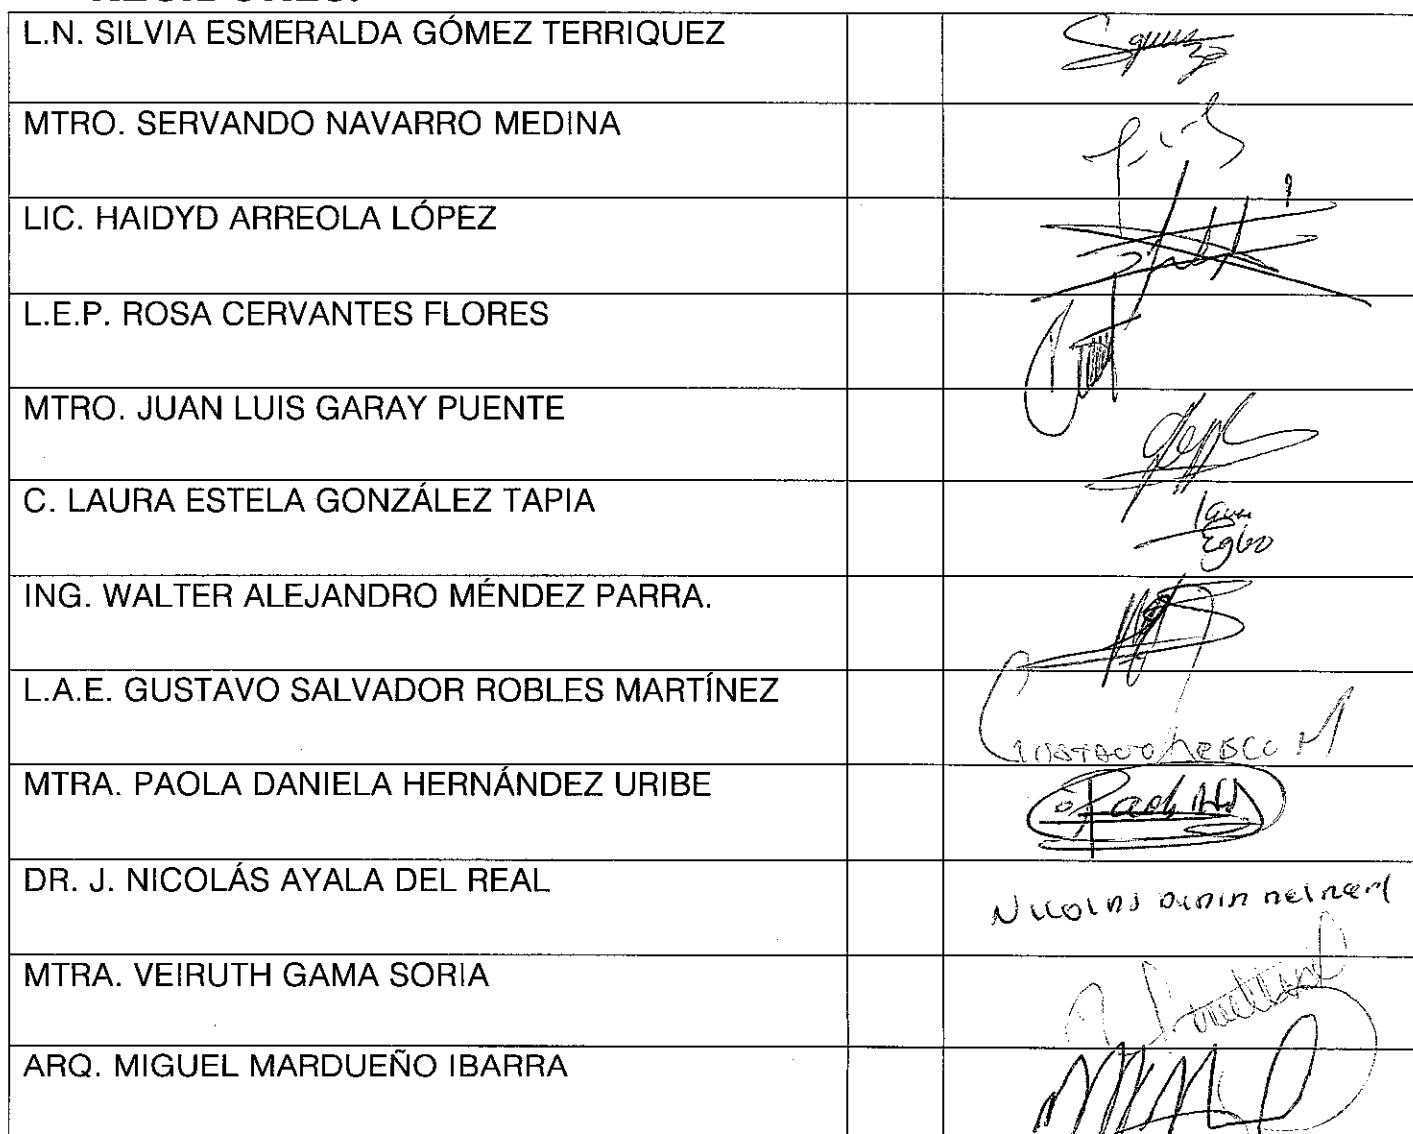 REGIDORES:
L.N. SILVIA ESMERALDA GÓMEZ TERRIQUEZ
MTRO. SERVANDO NAVARRO MEDINA
LIC. HAIDYD ARREOLA LÓPEZ
L.E.P. ROSA CERVANTES FLORES
MTRO. JUAN LUIS GARAY PUENTE
C. LAURA ESTELA GONZÁLEZ TAPIA
ING. WALTER ALEJANDRO MÉNDEZ PARRA.
L.A.E. GUSTAVO SALVADOR ROBLES MARTÍNEZ
MTRA. PAOLA DANIELA HERNÁNDEZ URIBE
DR. J. NICOLÁS AYALA DEL REAL
MTRA. VEIRUTH GAMA SORIA
ARQ. MIGUEL MARDUEÑO IBARRA